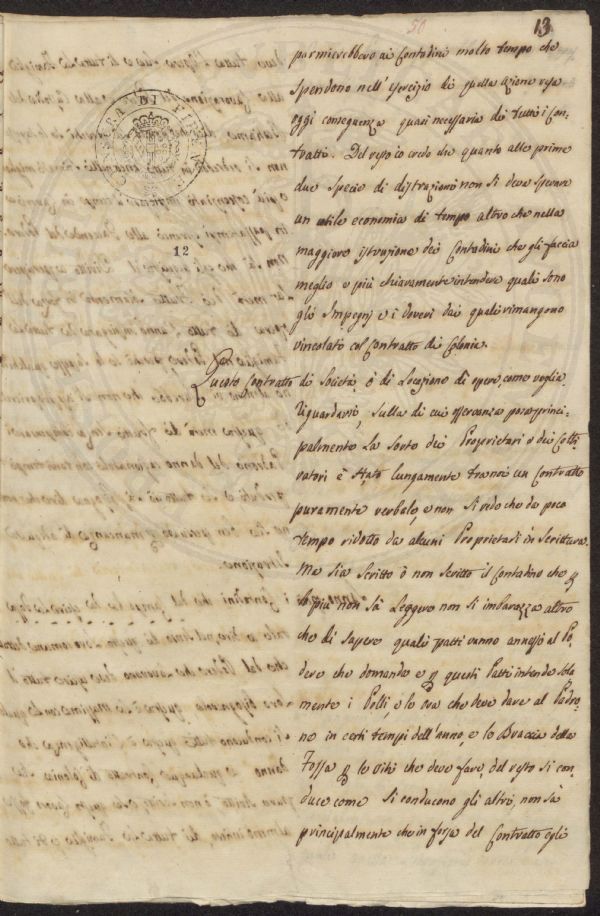 50
13
parmierebbero ai Contadini molto tempo che
spendono nell'esercizio di quella azione resa
oggi conseguenza quasi necessaria di tutti i Con-
tratti. Del resto io credo che quanto alle prime
due specie di distrazioni non si deve sperare
un utile economia di tempo altro che nella
maggiore istruzione dei Contadini che gli faccia
meglio e più chiaramente intendere quali sono
gl'Impegni e i doveri dai quali rimangono
vincolati col Contratto di Colonia.
12
Questo Contratto di Società, ò di Locazione di opere, come voglia
riguardarsi, sulla di cui osservanza posa princi-
palmente la sorte dei Proprietari e dei Colti-
vatori è stato lungamente tra noi un Contratto
puramente verbale, e non si vede che da poco
tempo ridotto da alcuni Proprietari in Scrittura.
Ma sia scritto ò non scritto il Contadino che p
lo più non sà leggere non si imbarazza altro
che di sapere quali patti vanno annessi al Po-
dere che domanda e p questi Patti intende sola-
mente i Polli, e le ova che deve dare al Padro-
ne in certi tempi dell'anno, e le Braccia della
Fossa p le viti che deve fare, del resto si con-
duce come si conducono gli altri, non sà
principalmente che in forza del Contratto egli